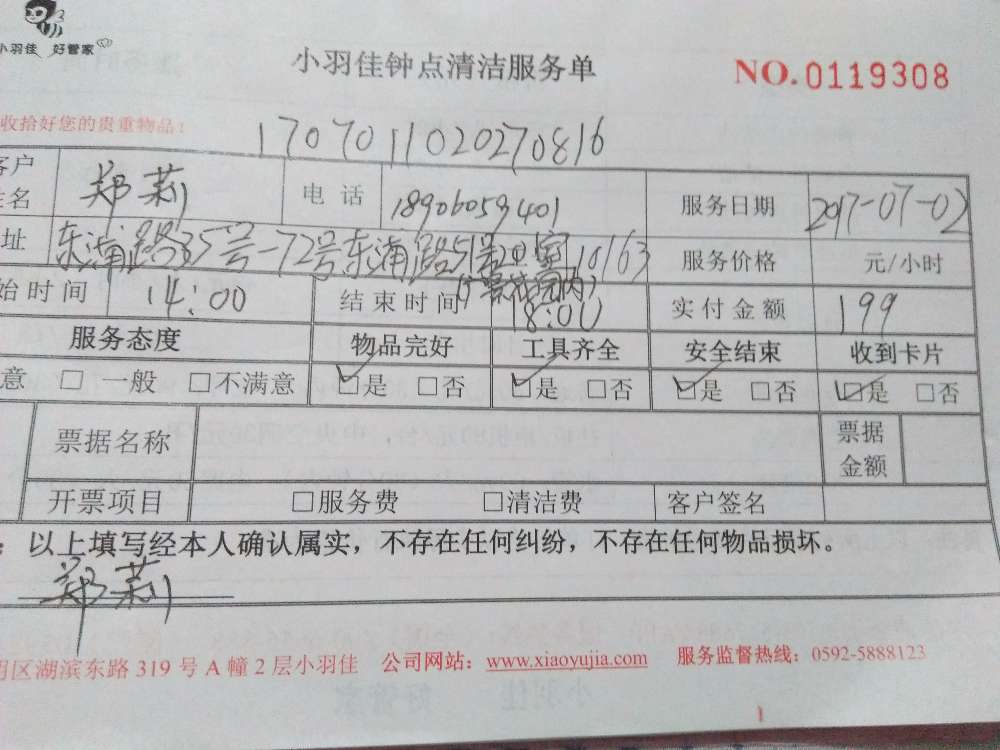 小羽佳 好管家
小羽佳钟点清洁服务单
NO.0119308
收拾好您的贵重物品!
1707011020270816
客户姓名 郑莉 电话 18906059401 服务日期 2017-07-02
址 东浦路35号-72号东浦路51号 10163 服务价格 元/小时
始时间 14:00 结束时间 18:00 实付金额 199
服务态度 物品完好 工具齐全 安全结束 收到卡片
意 □一般 □不满意 ☑是 □否 ☑是 □否 ☑是 □否 ☑是 □否
票据名称 票据金额
开票项目 □服务费 □清洁费 客户签名
：以上填写经本人确认属实，不存在任何纠纷，不存在任何物品损坏。
郑莉
明区湖滨东路 319 号 A 幢 2 层小羽佳 公司网站：www.xiaoyujia.com 服务监督热线：0592-5888123